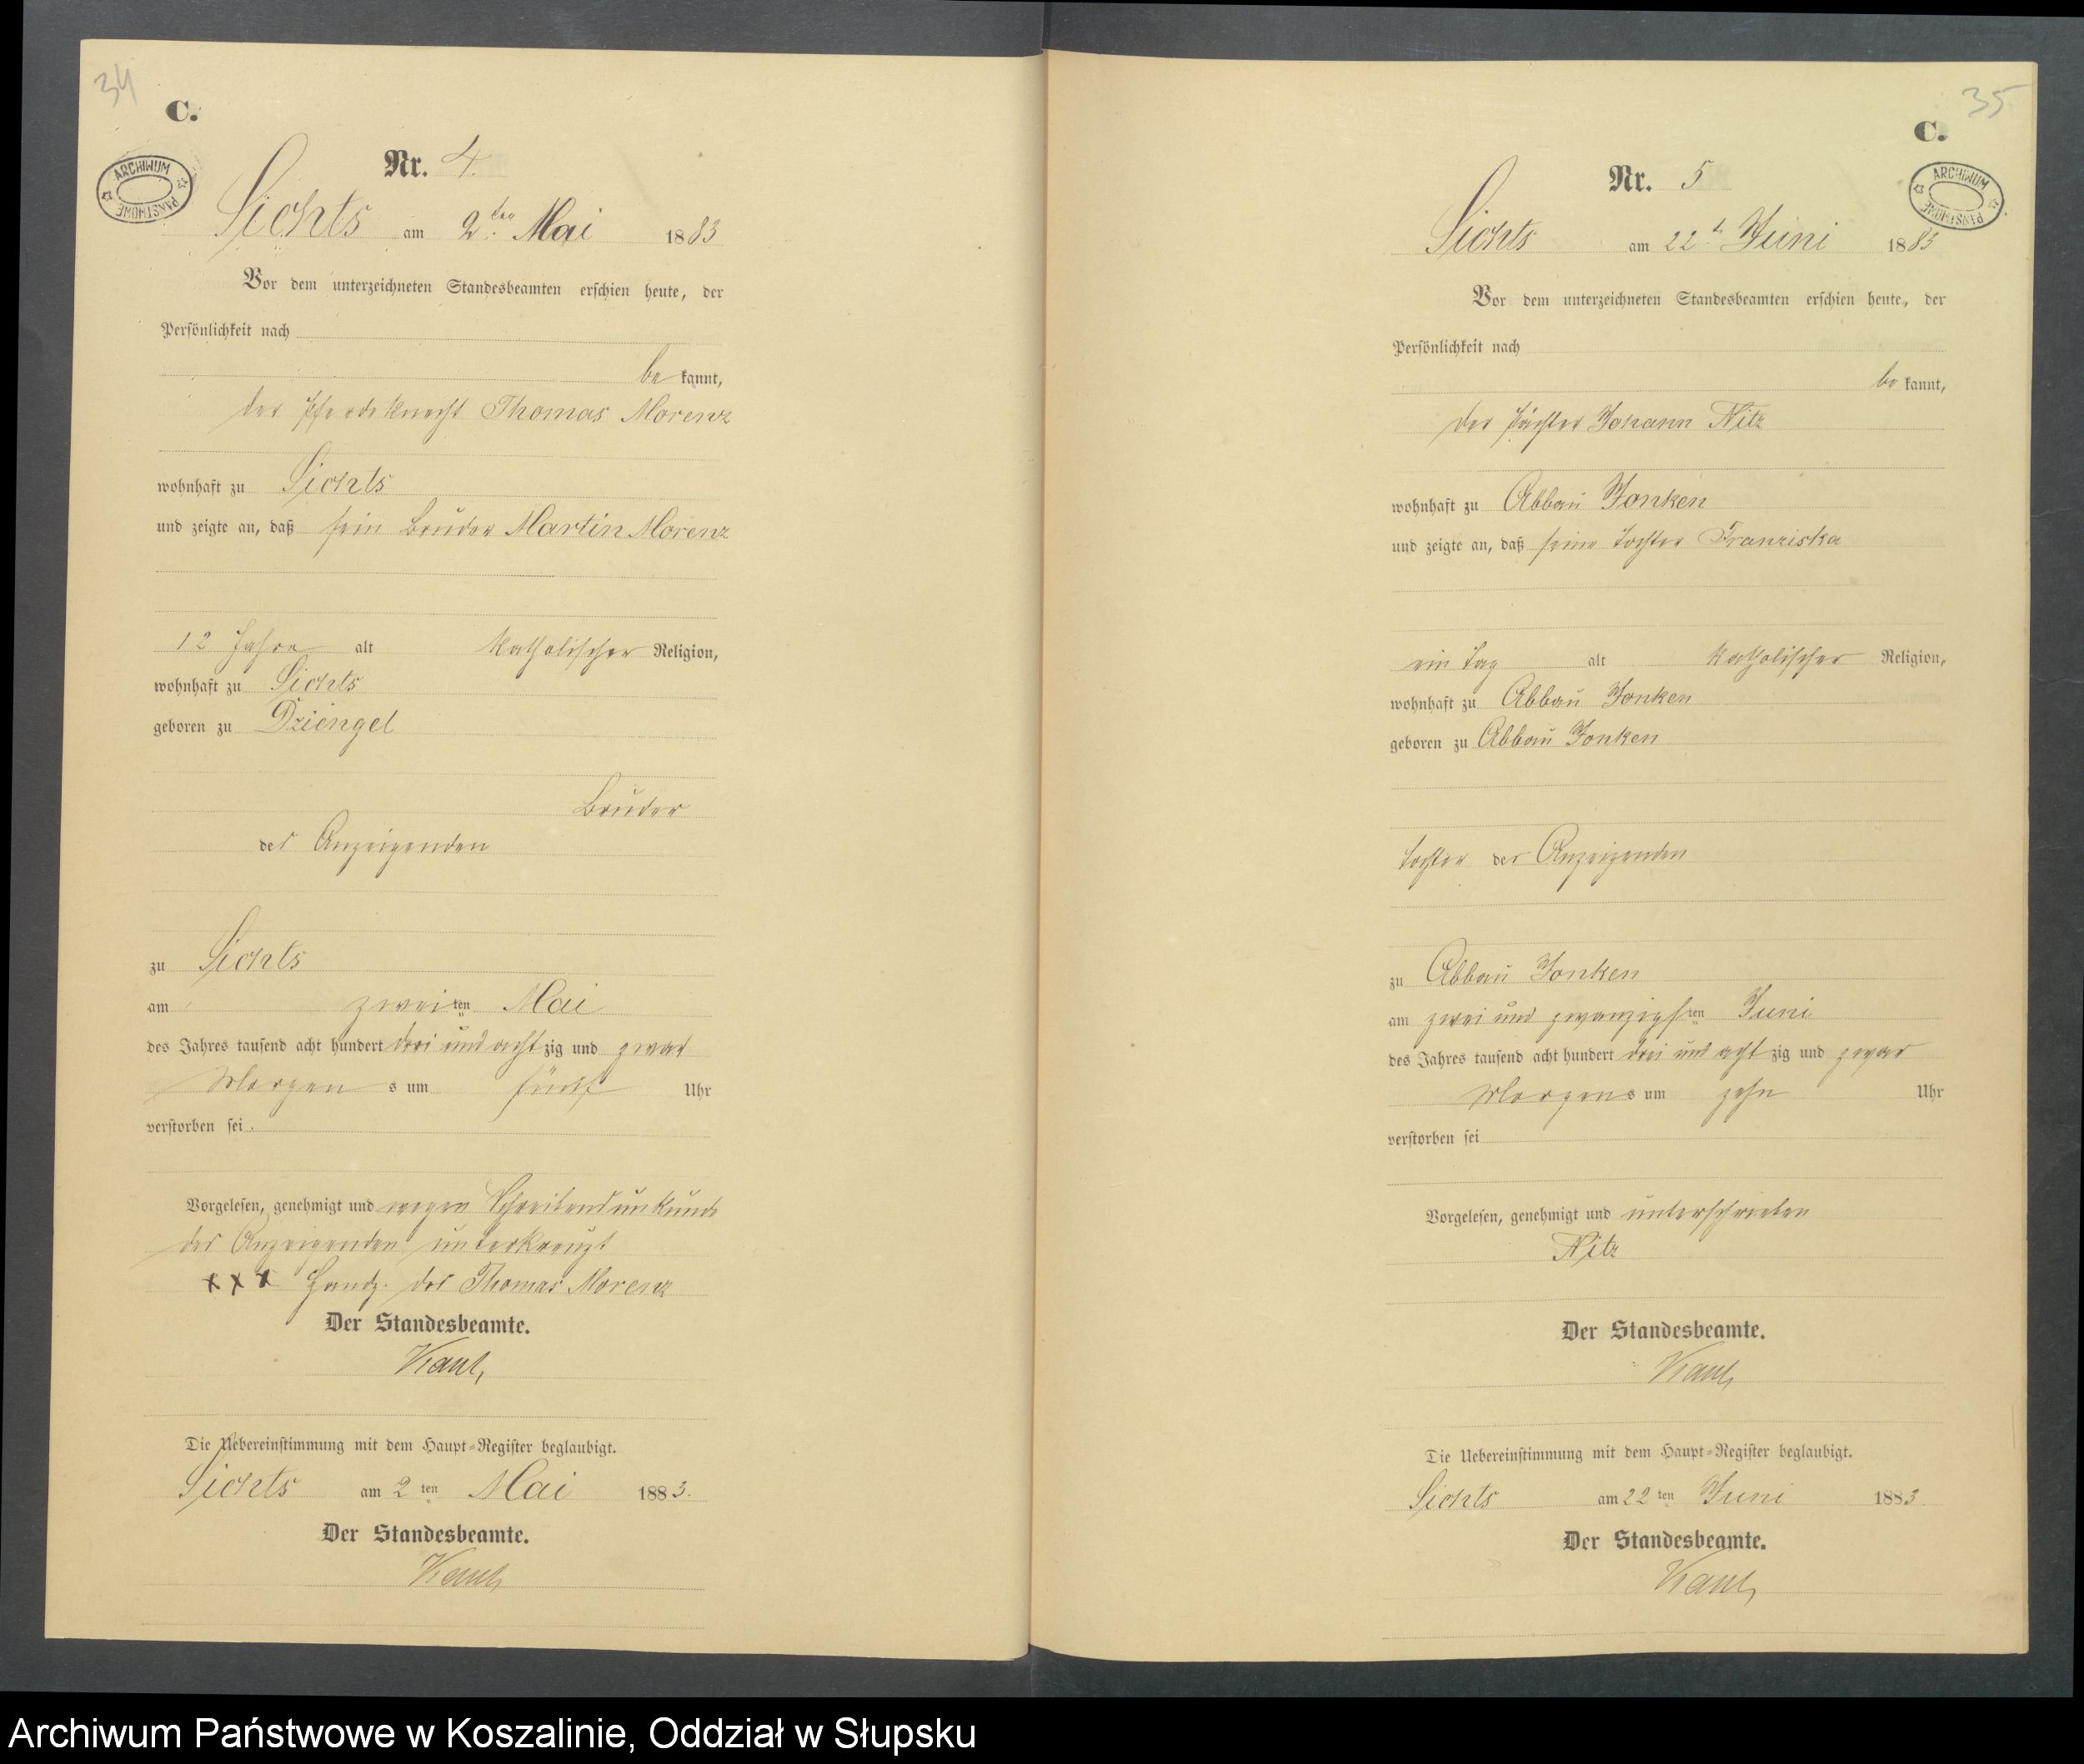 34
C.
ARCHIWUM PAŃSTWOWE
Nr. 4.
Lichts am 2ten Mai 1883
Vor dem unterzeichneten Standesbeamten erschien heute, der
Persönlichkeit nach
be kannt,
der Pferdeknecht Thomas Morenz
wohnhaft zu Lichts
und zeigte an, daß sein Bruder Martin Morenz
12 Jahre alt katholischer Religion,
wohnhaft zu Lichts
geboren zu Dziengel
Bruder
des Anzeigenden
zu Lichts
am zweiten Mai
des Jahres tausend acht hundert drei und achtzig und zwar
Morgens um fünf Uhr
verstorben sei.
Vorgelesen, genehmigt und wegen Schreibensunkunde
des Anzeigenden unterkreuzt
xxx Handz. des Thomas Morenz
Der Standesbeamte.
Die Uebereinstimmung mit dem Haupt-Register beglaubigt.
Lichts am 2ten Mai 1883.
Der Standesbeamte.
35
C.
ARCHIWUM PAŃSTWOWE
Nr. 5
Lichts am 22t Juni 1883
Vor dem unterzeichneten Standesbeamten erschien heute, der
Persönlichkeit nach
be kannt,
der Pächter Johann Nitz
wohnhaft zu Abbau Jonken
und zeigte an, daß seine Tochter Franziska
ein Tag alt katholischer Religion,
wohnhaft zu Abbau Jonken
geboren zu Abbau Jonken
Tochter des Anzeigenden
zu Abbau Jonken
am zwei und zwanzigsten Juni
des Jahres tausend acht hundert drei und achtzig und zwar
Morgens um zehn Uhr
verstorben sei
Vorgelesen, genehmigt und unterschrieben
Nitz
Der Standesbeamte.
Die Uebereinstimmung mit dem Haupt-Register beglaubigt.
Lichts am 22ten Juni 1883
Der Standesbeamte.
Archiwum Państwowe w Koszalinie, Oddział w Słupsku